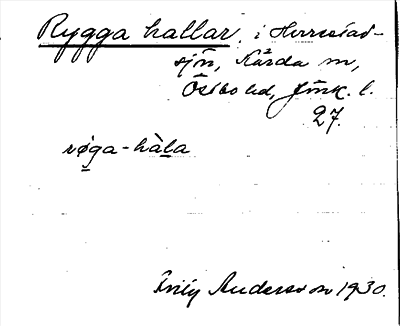 Rygga hallar, i Herrestad-
sjön, Kärda sn,
Östbo hd, Jönk. l.
27.
røga-hàla
Andersson 1930.